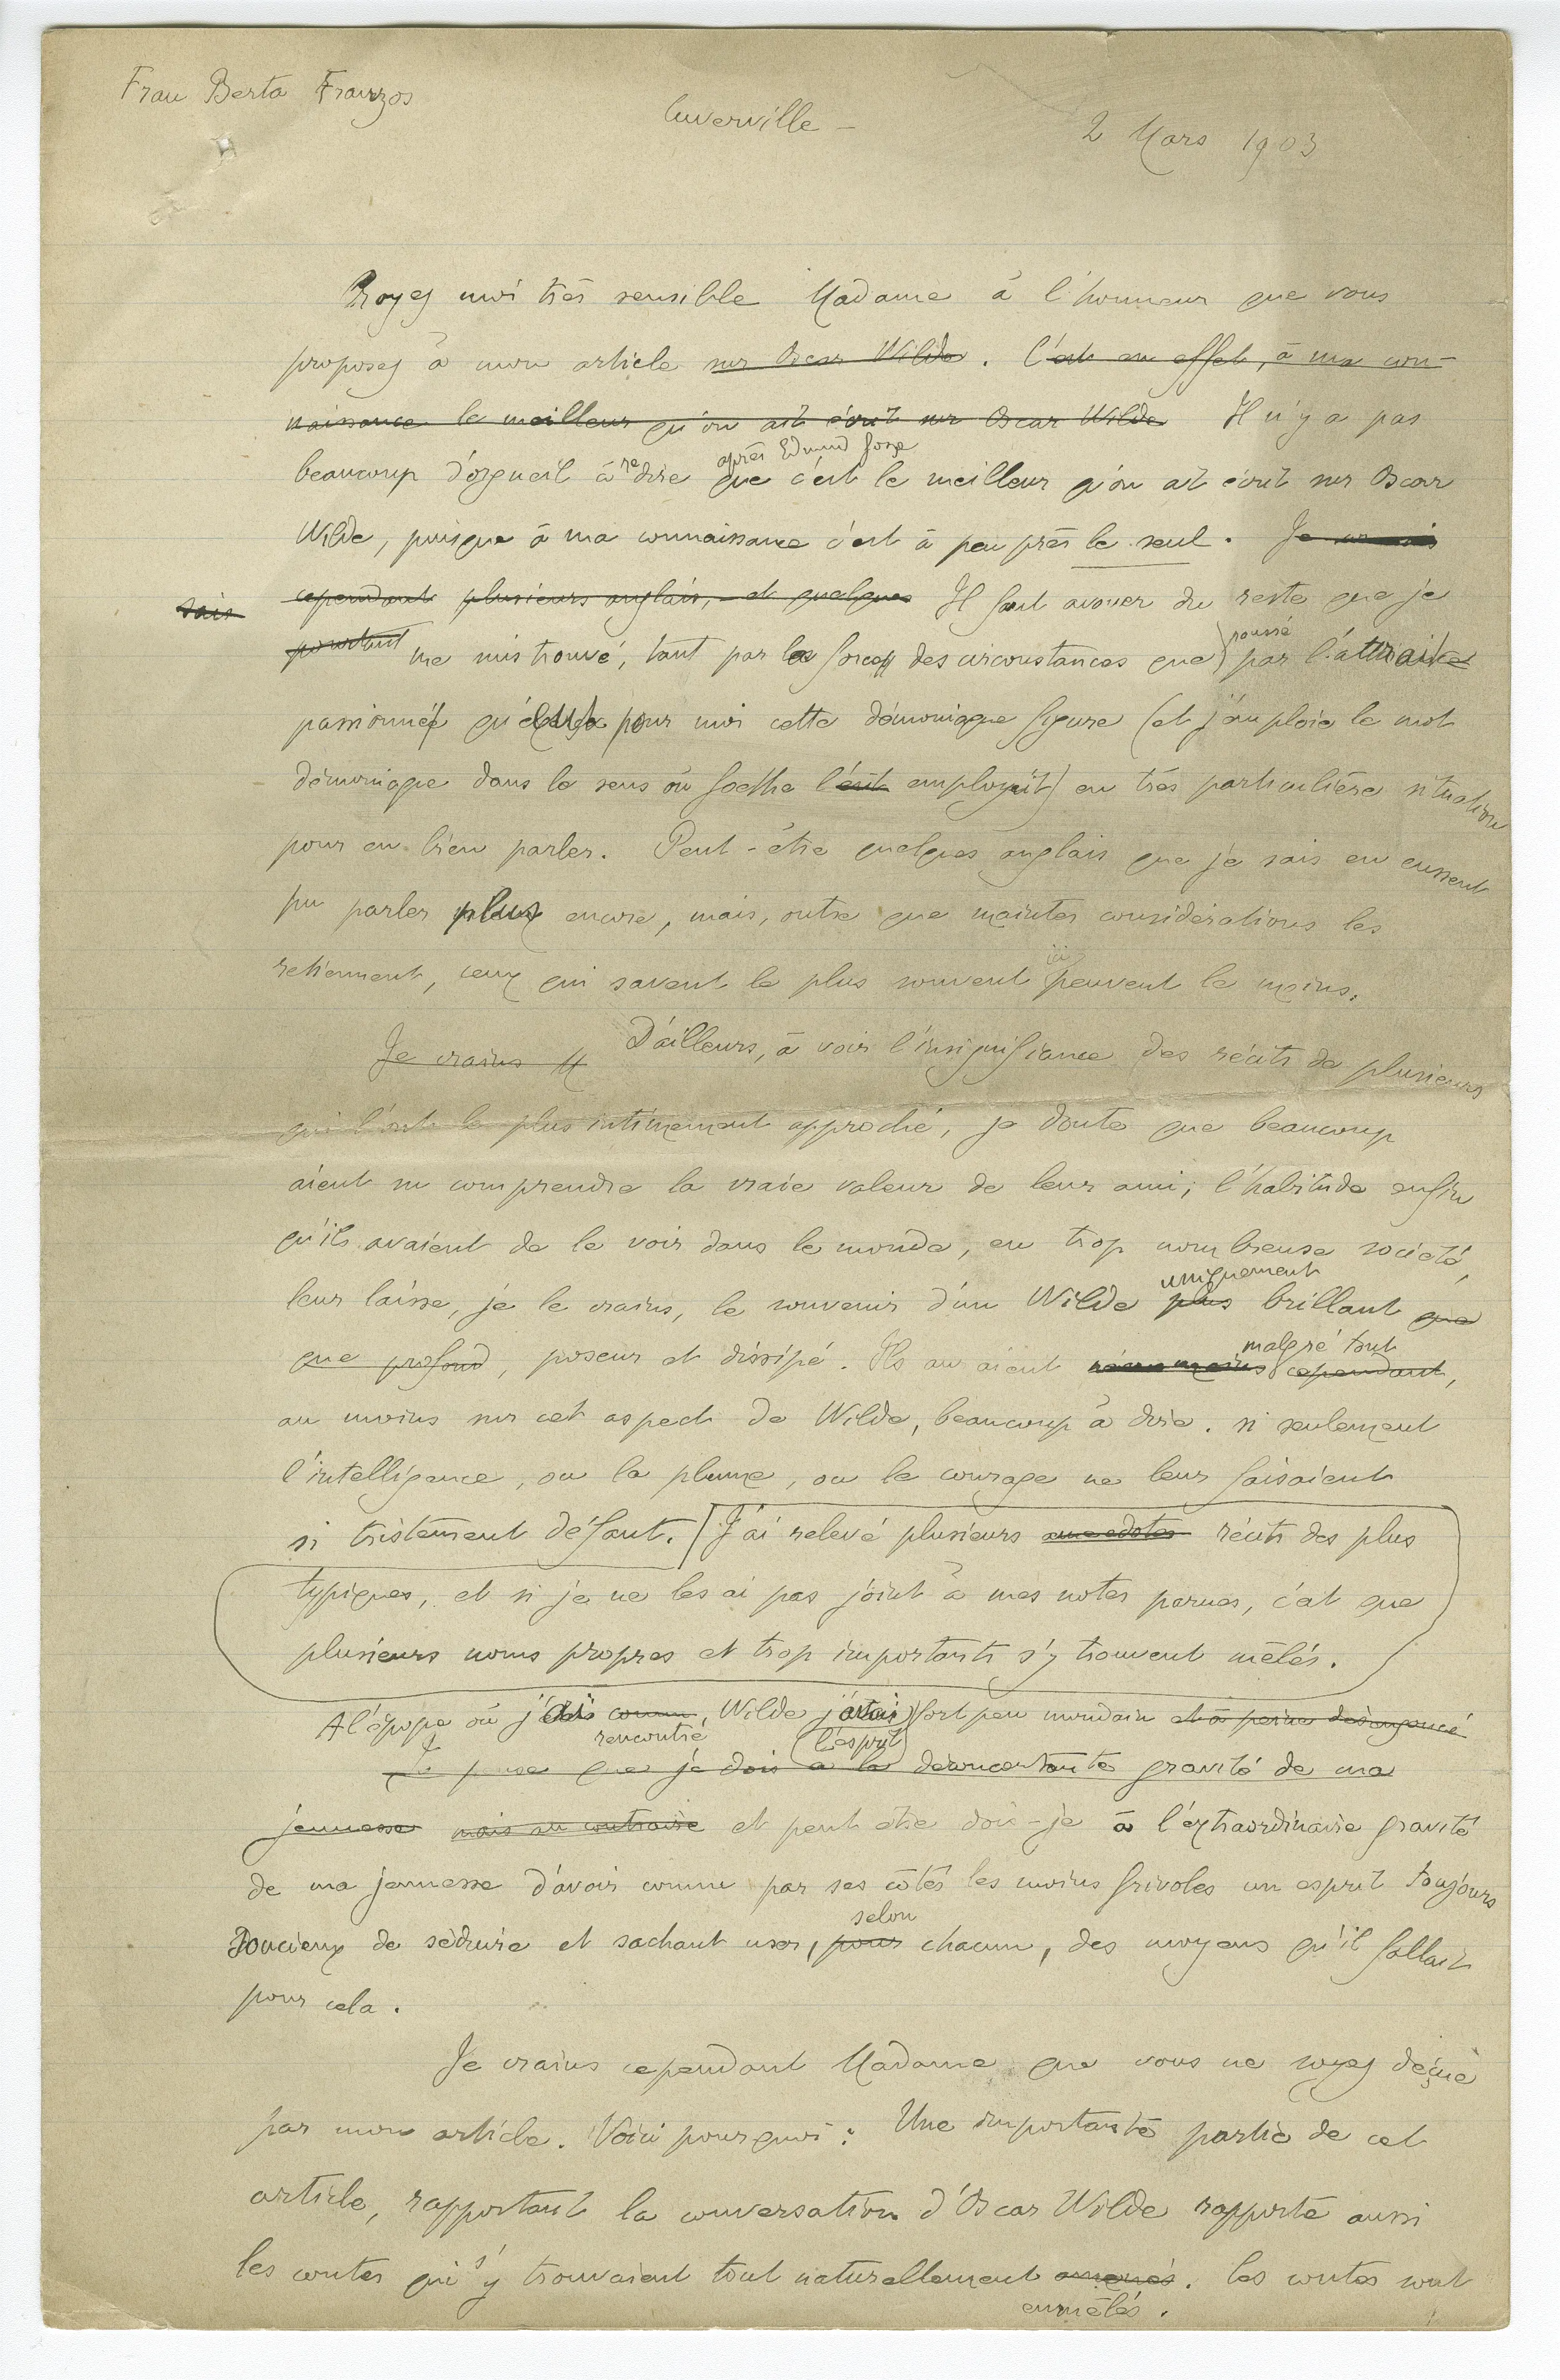 Frau Berta Franzos
Cuverville –
2 Mars 1903
Croyez moi très sensible Madame à l'honneur que vous
proposez à mon article sur Oscar Wilde. C'est en effet, à ma con-
naissance le meilleur qu'on ait écrit sur Oscar Wilde Il n'y a pas
après Edmund Gosse
beaucoup d'orgueil à redire que c'est le meilleur qu'on ait écrit sur Oscar
Wilde, puisque à ma connaissance c'est à peu près le seul. Je
sais cependant plusieurs anglais, et quelques Il faut avouer du reste que je
poussé
pourtant me suis trouvé, tant par la force des circonstances que par l'attrait
passionné qu'eut pour moi cette démoniaque figure (et j'emploie le mot
démoniaque dans le sens où Goethe l'eût employait) en très particulière situation
pour en bien parler. Peut-être quelques anglais que je sais en eussent
pu parler plus encore, mais, outre que maintes considérations les
ici
retiennent, ceux qui savent le plus souvent peuvent le moins.
Je crains D'ailleurs, à voir l'insignifiance des récits de plusieurs
qui l'ont le plus intimement approché, je doute que beaucoup
aient su comprendre la vraie valeur de leur ami; l'habitude enfin
qu'ils avaient de le voir dans le monde, en trop nombreuse société,
uniquement
leur laisse, je le crains, le souvenir d'un Wilde plus brillant que
que profond, poseur et dissipé. Ils auraient
malgré tout
néanmoins cependant,
au moins sur cet aspect de Wilde, beaucoup à dire. si seulement
l'intelligence, ou la plume, ou le courage ne leur faisaient
si tristement défaut. J'ai relevé plusieurs anecdotes récits des plus
typiques, et si je ne les ai pas joint à mes notes parues, c'est que
plusieurs noms propres et trop importants s'y trouvent mêlés.
A l'époque où j'ai connu, Wilde j'étais fort peu mondain et à peine désengoncé
rencontré
l'esprit
Je pense que je dois à la déconcertante gravité de ma
jeunesse mais au contraire et peut être dois-je à l'extraordinaire gravité
de ma jeunesse d'avoir connu par ses côtés les moins frivoles un esprit toujours
selon
soucieux de séduire et sachant user, pour chacun, des moyens qu'il fallait
pour cela.
Je crains cependant Madame que vous ne soyez déçue
par mon article. Voici pourquoi : Une importante partie de cet
article, rapportant la conversation d'Oscar Wilde rapporte aussi
les contes qui s'y trouvaient tout naturellement amenés. Ces contes sont
enmêlés.